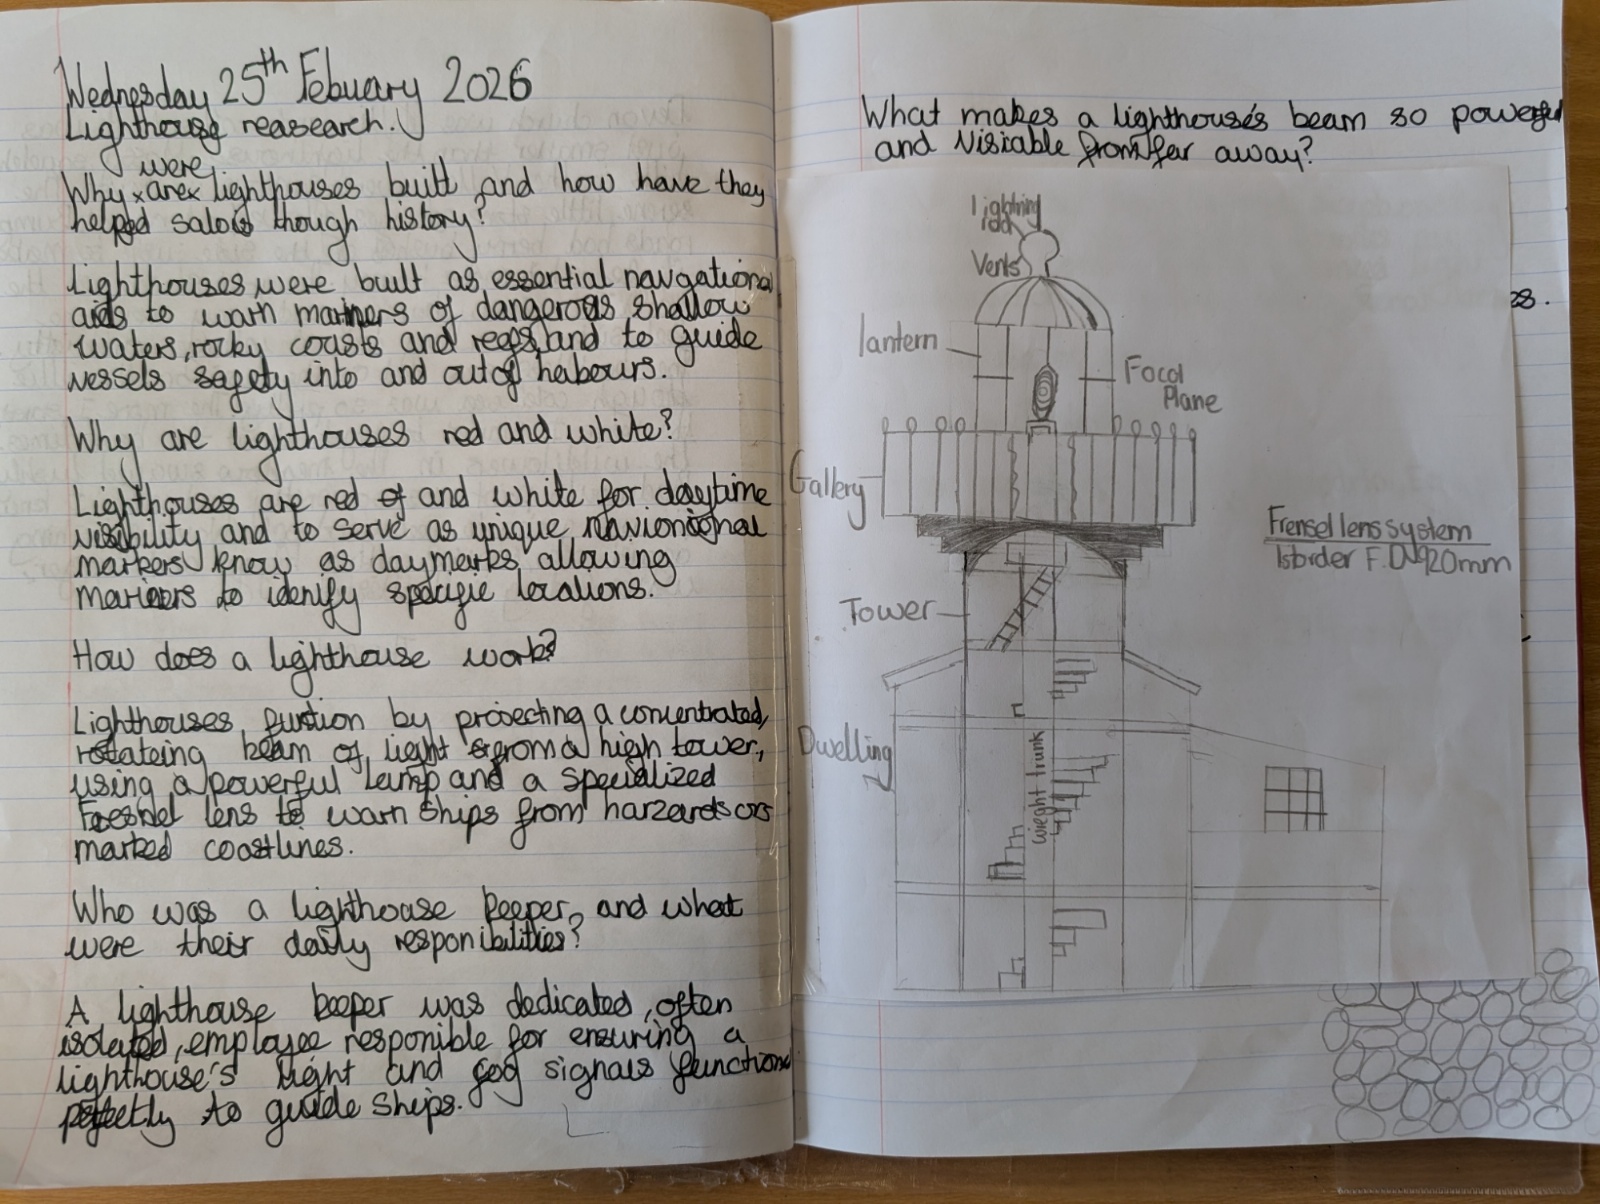 Wednesday 25th Febuary 2026
Lighthouse reasearch.
were
Why xarex lighthouses built and how have they
helped salois though history?
Lighthouses were built as essential navgational
aids to warn mariners of dangerous shallow
waters, rocky coasts and reefs, and to guide
vessels safety into and out of habours.
Why are lighthouses red and white?
Lighthouses are red of and white for daytime
visibility and to serve as unique navionional
markers know as daymarks, allowing
mariners to idenify specific locations.
How does a lighthouse work?
Lighthouses funtion by projecting a concentrated,
rotateing beam of light from a high tower,
using a powerful lamp and a specialized
lens to warn ships from harzards or
marked coastlines.
Who was a lighthouse keeper, and what
were their daily responibilities?
A lighthouse keeper was dedicated, often
isolated, employee responible for ensuring a
lighthouse's light and fog signals functiond
perfectly to guide ships.
What makes a lighthouse's beam so powerful
and visiable from far away?
es.
Lightning
rod
Vents
lantern
Focal
Plane
Gallery
Frensel lens system
1st order F.D 920mm
Tower
Dwelling
wieght trunk